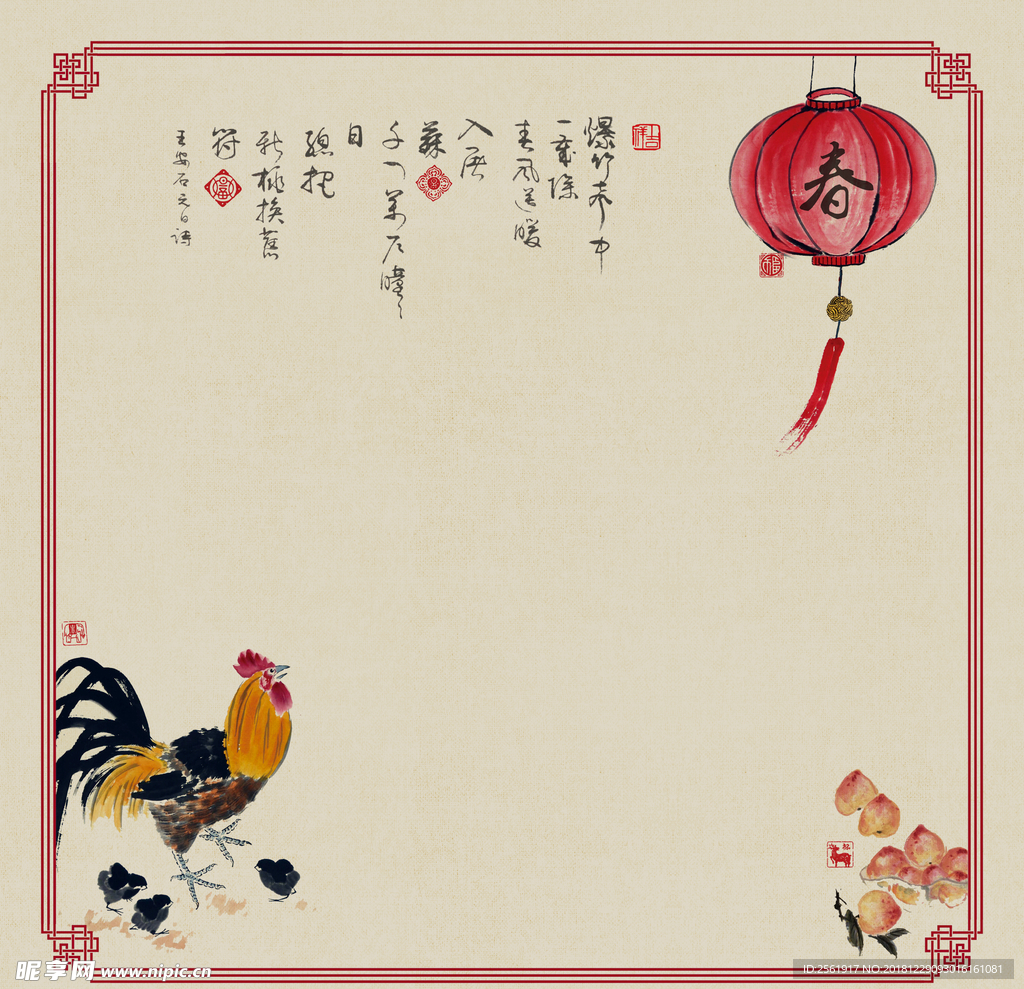 吉祥
爆竹声中
一歲除
春风送暖
入屠
蘇
千门萬户曈曈
日
總把
新桃換舊
符
福
王安石元日詩
春
昵享网 www.nipic.cn
ID:2561917 NO:20181229093016161081